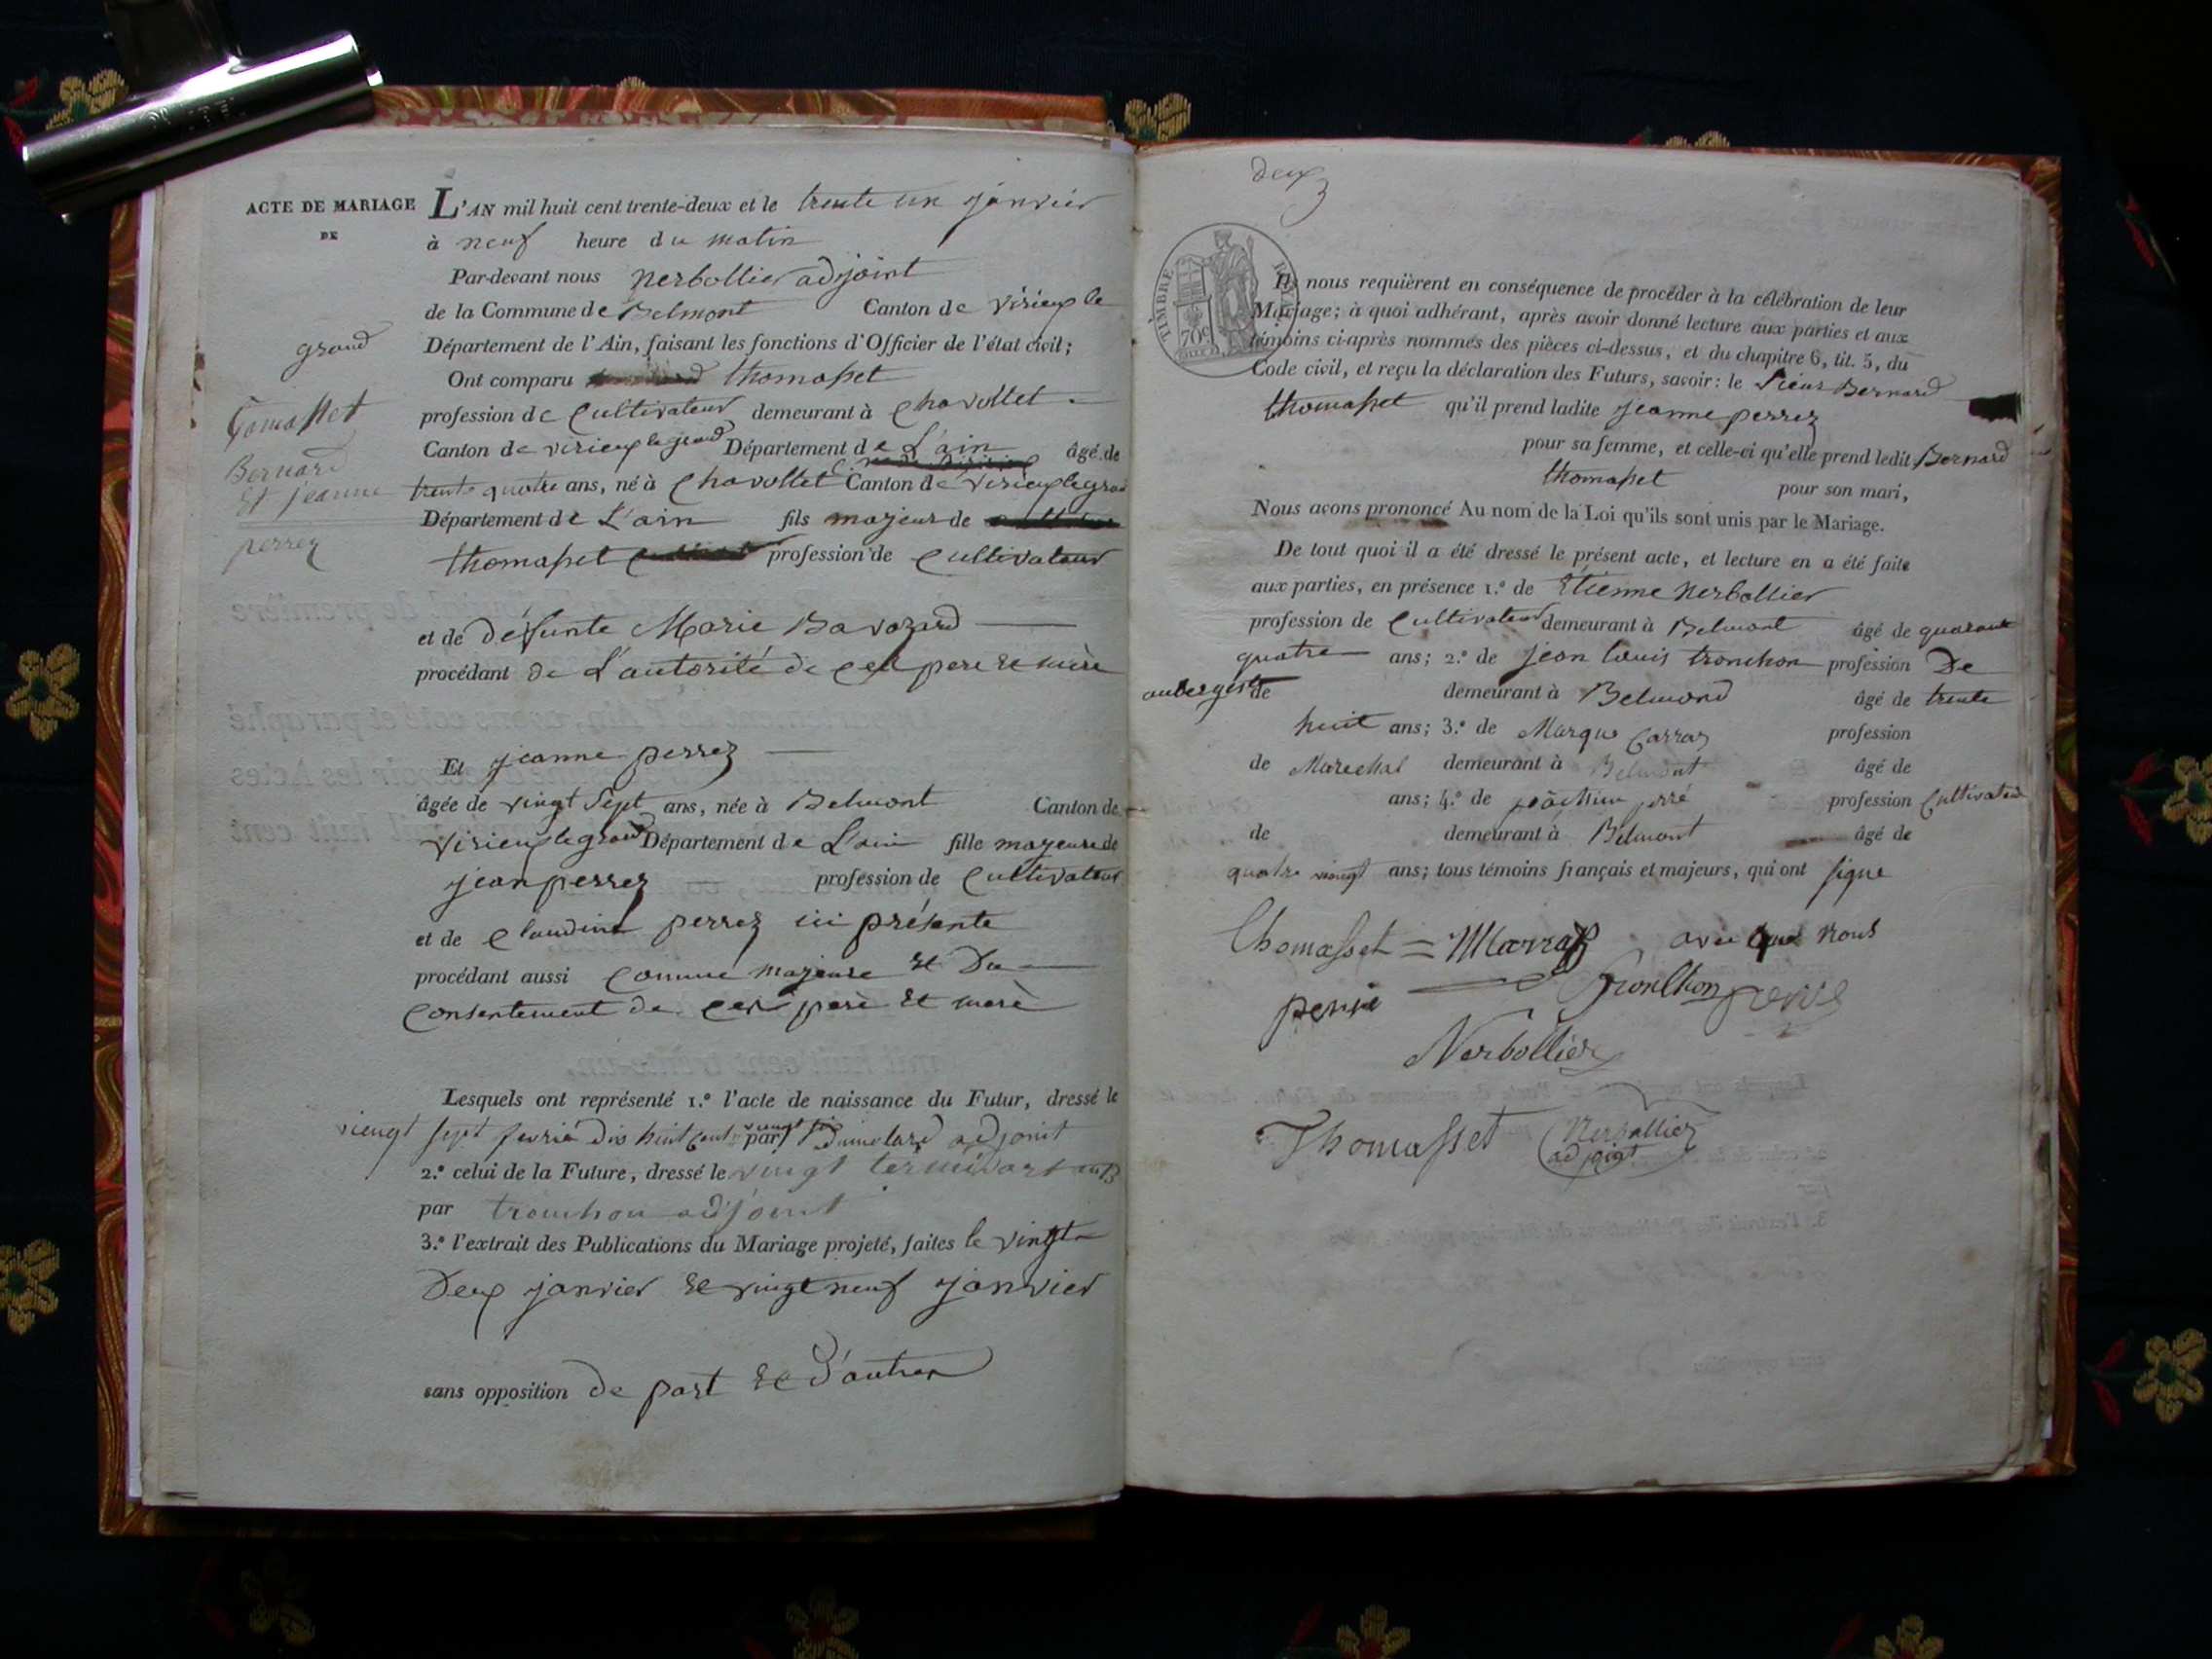 ACTE DE MARIAGE
DE
grand
Tomasset
Bernard
Et jeanne
perrez
L'AN mil huit cent trente-deux et le trente un janvier
à neuf heure du matin
Par-devant nous Nerbollier adjoint
de la Commune de Belmont Canton de virieux le
Département de l'Ain, faisant les fonctions d'Officier de l'état civil;
Ont comparu thomasset
profession de Cultivateur demeurant à Chavollet
Canton de virieux le grand Département de L'ain âgé de
trente quatre ans, né à Chavollet Canton de virieux le gran
Département de L'ain fils majeur de
thomasset profession de Cultivateur
et de défunte Marie Bavozard
procédant de L'autorité de ces pere et mère
Et jeanne perrez
âgée de vingt Sept ans, née à Belmont Canton de
virieux le grand Département de L'ain fille majeure de
jean perrez profession de Cultivateur
et de Claudine perrez ici présente
procédant aussi Comme majeure et Du
Consentement de ces perè et merè
Lesquels ont représenté 1.º l'acte de naissance du Futur, dressé le
viengt sept fevrié dis huit cent par Dumolard adjoint
2.º celui de la Future, dressé le vingt termidort an 13
par tronchon adjoint
3.º l'extrait des Publications du Mariage projeté, faites le vingt
Deux janvier et vingt neuf janvier
sans opposition de part et d'autres
deux
TIMBRE ROYAL
70c
Ils nous requièrent en conséquence de procéder à la célébration de leur
Mariage; à quoi adhérant, après avoir donné lecture aux parties et aux
témoins ci-après nommés des pièces ci-dessus, et du chapitre 6, tit. 5, du
Code civil, et reçu la déclaration des Futurs, savoir: le Sieur Bernard
thomasset qu'il prend ladite jeanne perrez
pour sa femme, et celle-ci qu'elle prend ledit Bernard
thomasset pour son mari,
Nous avons prononcé Au nom de la Loi qu'ils sont unis par le Mariage.
De tout quoi il a été dressé le présent acte, et lecture en a été faite
aux parties, en présence 1.º de Etienne Nerbollier
profession de Cultivateur demeurant à Belmont âgé de quarante
quatre ans; 2.º de jean Louis tronchon profession De
aubergiste de demeurant à Belmond âgé de trente
huit ans; 3.º de Marque Carraz profession
de Marechal demeurant à Belmont âgé de
ans; 4.º de perré profession Cultivateur
de demeurant à Belmont âgé de
quatre viengt ans; tous témoins français et majeurs, qui ont signé
Thomasset = Marraz avec que nous
perré Tronchon perré
Nerbollier
Thomasset Nerbollier
adjoint